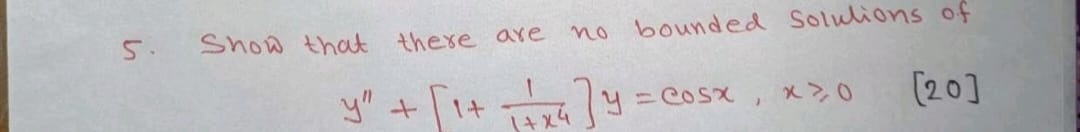 5. Show that there are no bounded Solutions of
y'' + [1+ 1/(1+x⁴)] y = cosx, x ≥ 0 [20]